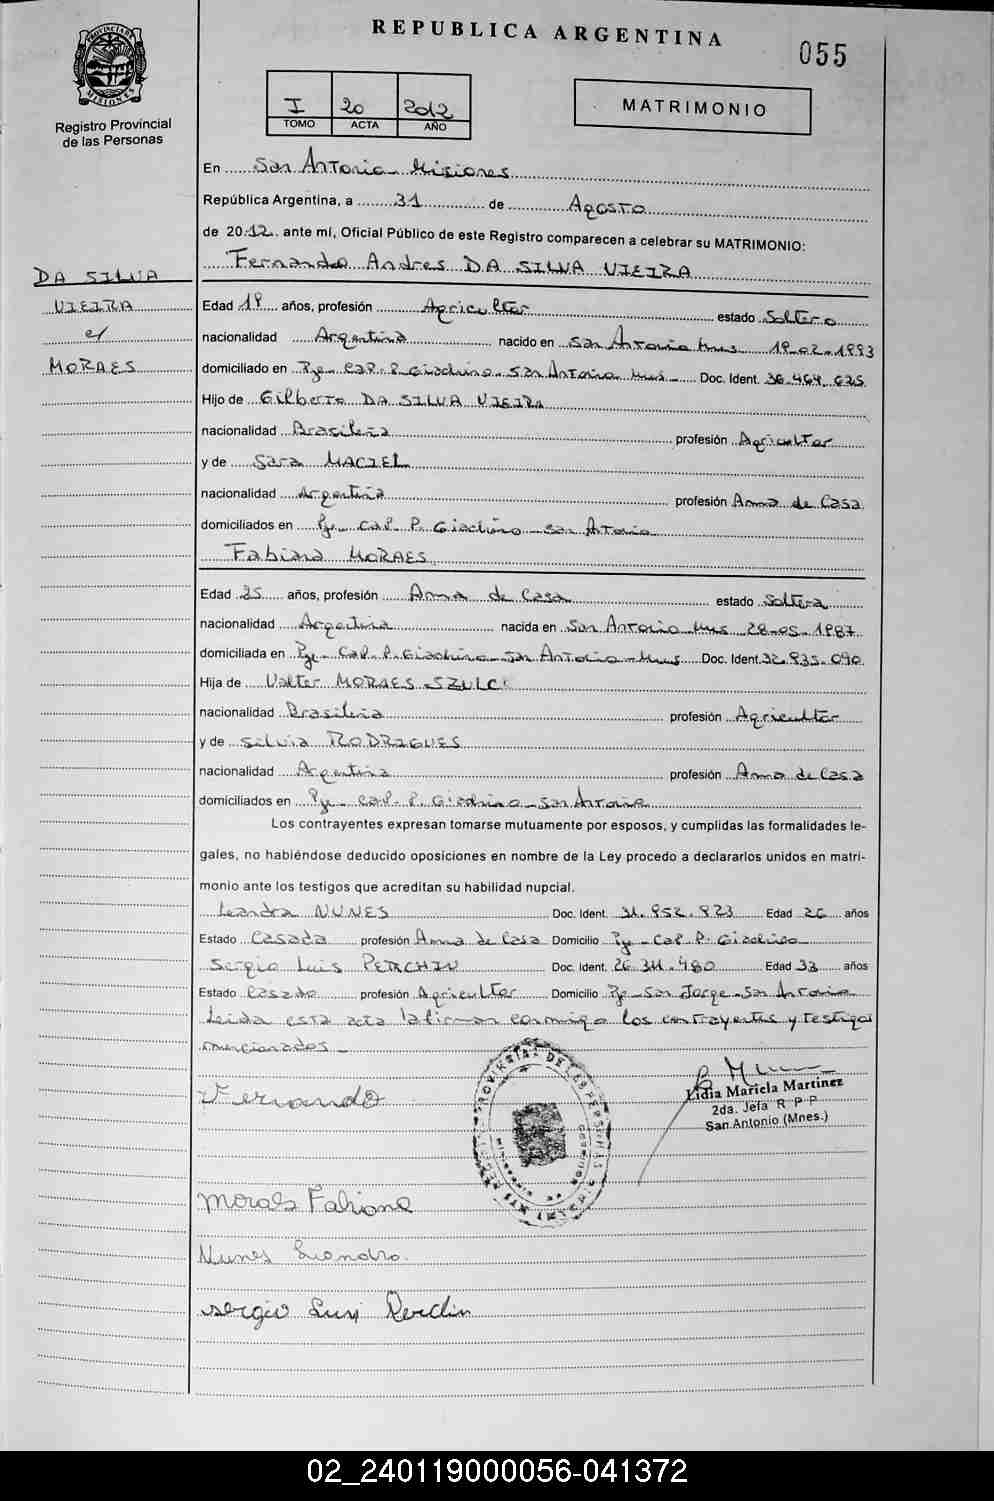 REPUBLICA ARGENTINA
055
PROVINCIA DE MISIONES
Registro Provincial
de las Personas
I 20 2012
TOMO ACTA AÑO
MATRIMONIO
En San Antonio Misiones
República Argentina, a 31 de Agosto
de 2012 ante mí, Oficial Público de este Registro comparecen a celebrar su MATRIMONIO:
Fernando Andres DA SILVA VIEIRA
DA SILVA
VIEIRA
c/
MORAES
Edad 19 años, profesión Agricultor estado Soltero
nacionalidad Argentina nacido en San Antonio Mnes 19-02-1993
domiciliado en Pje Cap. P. Giachino San Antonio Mnes Doc. Ident. 36.464.625
Hijo de Gilberto DA SILVA VIEIRA
nacionalidad Brasileña profesión Agricultor
y de Sara MACIEL
nacionalidad Argentina profesión Amma de Casa
domiciliados en Pje Cap. P. Giachino San Antonio
Fabiana MORAES
Edad 25 años, profesión Amma de Casa estado Soltera
nacionalidad Argentina nacida en San Antonio Mnes 28-05-1987
domiciliada en Pje Cap. P. Giachino San Antonio Mnes Doc. Ident. 32.935.090
Hija de Valter MORAES SZULCI
nacionalidad Brasileña profesión Agricultor
y de Silvia RODRIGUES
nacionalidad Argentina profesión Amma de Casa
domiciliados en Pje Cap. P. Giachino San Antonio
Los contrayentes expresan tomarse mutuamente por esposos, y cumplidas las formalidades le-
gales, no habiéndose deducido oposiciones en nombre de la Ley procedo a declararlos unidos en matri-
monio ante los testigos que acreditan su habilidad nupcial.
Leandra NUNES Doc. Ident. 31.952.923 Edad 26 años
Estado Casada profesión Amma de Casa Domicilio Pje Cap. P. Giachino
Sergio Luis PERCHIN Doc. Ident. 26.311.480 Edad 33 años
Estado Casado profesión Agricultor Domicilio Pje San Jorge San Antonio
Leida esta acta la firman conmigo los contrayentes y testigos
mencionados
Fernando
Lidia Mariela Martinez
2da. Jefa R P P
San Antonio (Mnes.)
Moraes Fabiana
Nunes Leandra
Sergio Luis
02_240119000056-041372